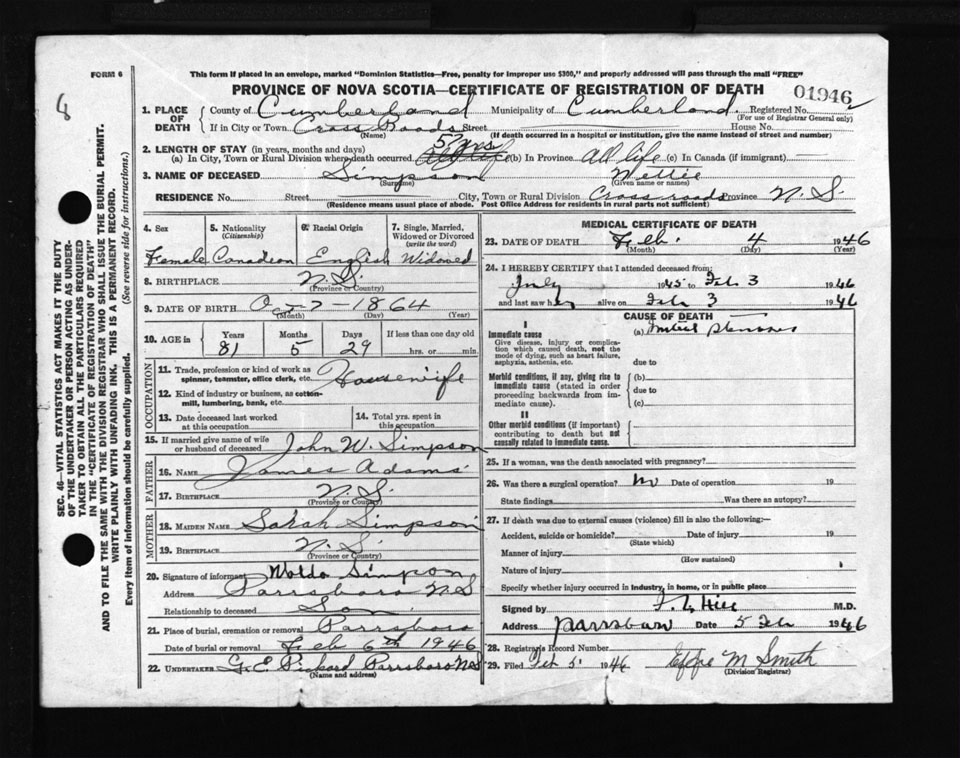 FORM 6
This form if placed in an envelope, marked "Dominion Statistics—Free, penalty for improper use $300," and properly addressed will pass through the mail "FREE"
PROVINCE OF NOVA SCOTIA—CERTIFICATE OF REGISTRATION OF DEATH
01946
8
SEC. 46—VITAL STATISTICS ACT MAKES IT THE DUTY
OF THE UNDERTAKER OR PERSON ACTING AS UNDER-
TAKER TO OBTAIN ALL THE PARTICULARS REQUIRED
IN THE "CERTIFICATE OF REGISTRATION OF DEATH"
AND TO FILE THE SAME WITH THE DIVISION REGISTRAR WHO SHALL ISSUE THE BURIAL PERMIT.
WRITE PLAINLY WITH UNFADING INK, THIS IS A PERMANENT RECORD.
Every item of information should be carefully supplied. (See reverse side for instructions.)
1. PLACE OF DEATH County of Cumberland Municipality of Cumberland Registered No.
(For use of Registrar General only)
If in City or Town Cross Roads Street House No.
(Name) (If death occurred in a hospital or institution, give the name instead of street and number)
2. LENGTH OF STAY (in years, months and days) 5 yrs
(a) In City, Town or Rural Division where death occurred All life (b) In Province All life (c) In Canada (if immigrant)
3. NAME OF DECEASED Simpson Nettie
(Surname) (Given name or names)
RESIDENCE No. Street City, Town or Rural Division Crossroads Province N.S.
(Residence means usual place of abode. Post Office Address for residents in rural parts not sufficient)
4. Sex 5. Nationality 6. Racial Origin 7. Single, Married,
(Citizenship) Widowed or Divorced
(write the word)
Female Canadian English Widowed
8. BIRTHPLACE N.S.
(Province or Country)
9. DATE OF BIRTH 1864
(Month) (Day) (Year)
10. AGE in Years Months Days If less than one day old
81 5 29 hrs. or min.
OCCUPATION
11. Trade, profession or kind of work as
spinner, teamster, office clerk, etc. Housewife
12. Kind of industry or business, as cotton-
mill, lumbering, bank, etc.
13. Date deceased last worked
at this occupation
14. Total yrs. spent in
this occupation
15. If married give name of wife
or husband of deceased John W. Simpson
FATHER
16. NAME James Adams
17. BIRTHPLACE N.S.
(Province or Country)
MOTHER
18. MAIDEN NAME Sarah Simpson
19. BIRTHPLACE N.S.
(Province or Country)
20. Signature of informant Simpson
Address Parrsboro N.S
Relationship to deceased Son
21. Place of burial, cremation or removal Parrsboro
Date of burial or removal Feb 6th 1946
22. UNDERTAKER G. E. Pickard Parrsboro NS
(Name and address)
MEDICAL CERTIFICATE OF DEATH
23. DATE OF DEATH Feb. 4 1946
(Month) (Day) (Year)
24. I HEREBY CERTIFY that I attended deceased from:
July 1945 to Feb 3 1946
and last saw her alive on Feb 3 1946
CAUSE OF DEATH
I
Immediate cause (a) Mitral stenosis
Give disease, injury or complica-
tion which caused death, not the
mode of dying, such as heart failure,
asphyxia, asthenia, etc.
due to
Morbid conditions, if any, giving rise to
immediate cause (stated in order
proceeding backwards from im-
mediate cause).
(b)
due to
(c)
II
Other morbid conditions (if important)
contributing to death but not
causally related to immediate cause.
25. If a woman, was the death associated with pregnancy?
26. Was there a surgical operation? no Date of operation 19
State findings Was there an autopsy?
27. If death was due to external causes (violence) fill in also the following:—
Accident, suicide or homicide? Date of injury 19
(State which)
Manner of injury
(How sustained)
Nature of injury
Specify whether injury occurred in industry, in home, or in public place
Signed by Hill M.D.
Address Parrsboro Date 5 Feb 1946
28. Registrar's Record Number
29. Filed Feb 5 1946 Effie M Smith
(Division Registrar)